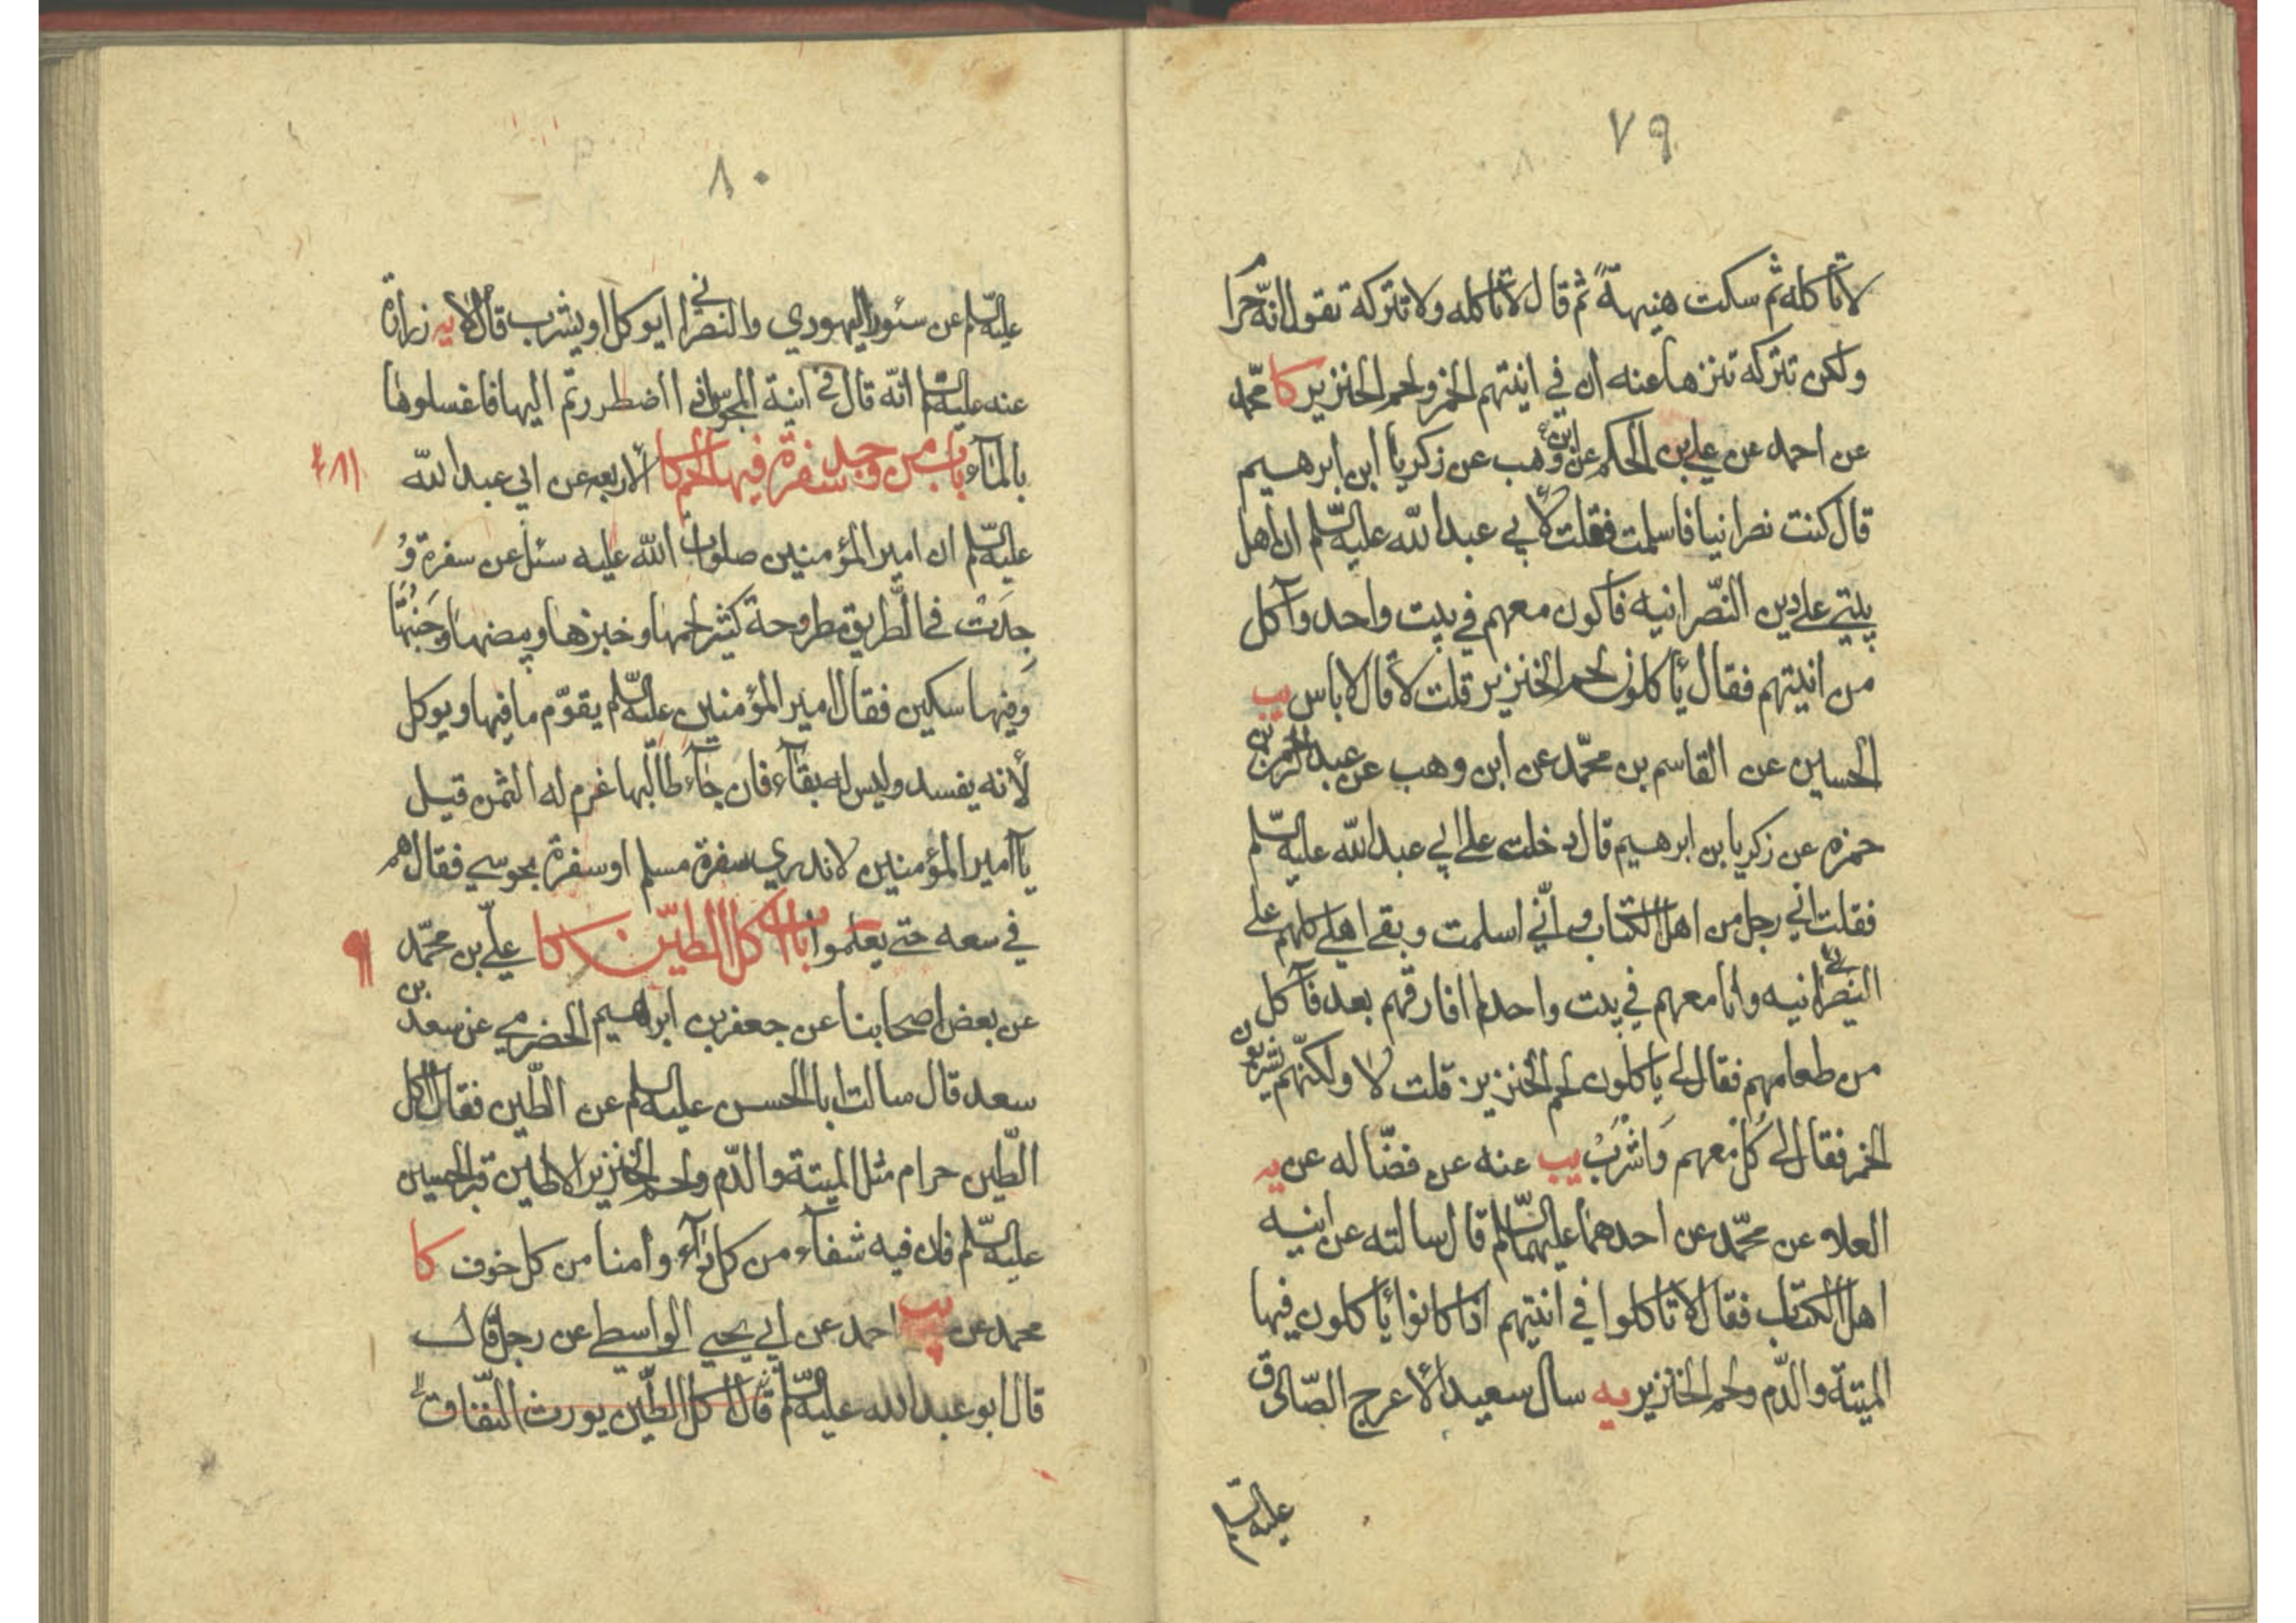 ٧٩
لا تأكله ثم سكت هنيهة ثم قال لا تأكله ولا تتركه تقول انّه حرام
ولكن تتركه تنزها عنه ان في انيتهم الخمر ولحم الخنزير كا محمد
عن احمد عن علي بن الحكم عن ابن وهب عن زكريا ابن ابرهيم
قال كنت نصرانيا فاسلمت فقلت لأبي عبدالله عليه السّلم ان اهل
بيتي على دين النّصرانيه فاكون معهم في بيت واحد وآكل
من انيتهم فقال يأكلون لحم الخنزير قلت لا قال لا باس يب
الحسين عن القاسم بن محمّد عن ابن وهب عن عبد الرحمن بن
حمزه عن زكريا بن ابرهيم قال دخلت على ابي عبدالله عليه السّلم
فقلت اني رجل من اهل الكتاب واني اسلمت وبقي اهلي كلهم على
النصرانيه وانا معهم في بيت واحد لم افارقهم بعد فآكل
من طعامهم فقال لي ياكلون لحم الخنزير قلت لا ولكنّهم يشربون
الخمر فقال لي كُلْ معهم وَاشْرَبْ يب عنه عن فضّاله عن يه
العلاء عن محمّد عن احدهما عليهما السّلم قال سالته عن انيه
اهل الكتاب فقال لا تاكلوا في انيتهم اذا كانوا يأكلون فيها
الميتة والدّم ولحم الخنزير يه سال سعيد الأعرج الصّادق
عليه السّلم
٨٠
عليه السّلم عن سئور اليهودي والنصراني ايوكل او يشرب قال لا يه زرارة
عنه عليه السّلم انّه قال في انية المجوس اذا اضطررتم اليها فاغسلوها
بالمآء باب من وجد سفرة فيها لحم كا الأربعه عن ابي عبدالله
عليه السّلم ان امير المؤمنين صلوات الله عليه سئل عن سفرة وُ
جِدَتْ في الطّريق مطروحة كثير لحمها وخبزها وبيضها وجبنها
وفيها سكين فقال امير المؤمنين عليه السّلم يقوّم ما فيها ويوكل
لأنه يفسد وليس له بقآء فان جآء طالبها غرم له الثمن قيل
يا امير المؤمنين لا ندري سفرة مسلم او سفرة مجوسي فقال هم
في سعه حتى يعلموا باب اكل الطّين كا عليّ بن محمّد
عن بعض اصحابنا عن جعفر بن ابراهيم الحضرمي عن سعد بن
سعد قال سالت ابا الحسن عليه السلم عن الطّين فقال اكل
الطّين حرام مثل الميتة والدّم ولحم الخنزير الا طين قبر الحسين
عليه السّلم فان فيه شفآء من كل دآء وامنا من كل خوف كا
محمد عن يب احمد عن ابي يحيى الواسطي عن رجل قال
قال ابو عبدالله عليه السّلم قال اكل الطّين يورث النّفاق